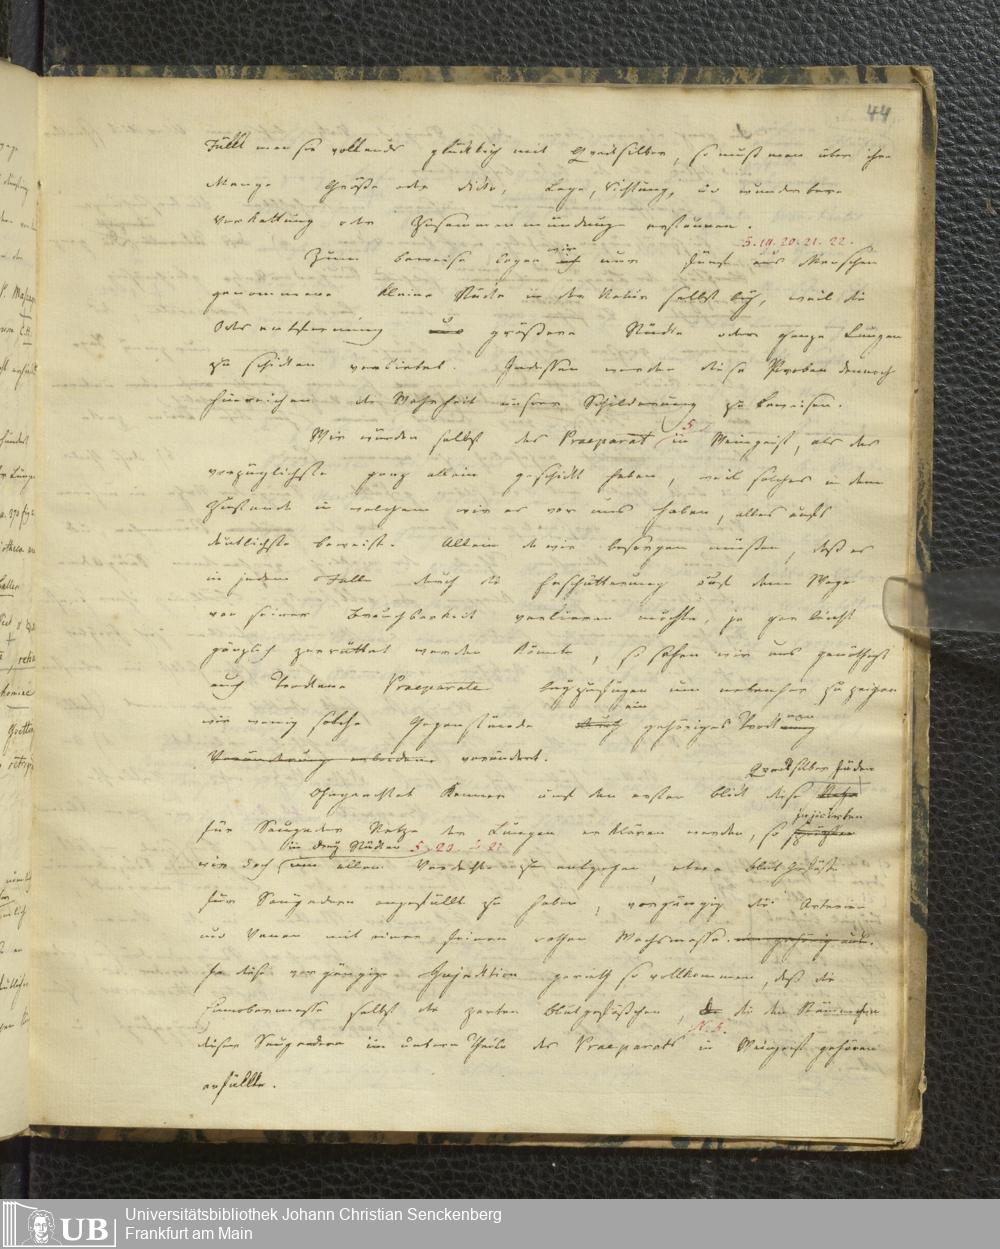 44
Füllt man sie vollends glücklich mit Quecksilber, so muß man über ihre
Menge Größe oder Dicke, Lage, Richtung, und wunderbare
Verkettung oder Zusammenmündung erstaunen.
5. 19. 20. 21. 22.
Zum Beweise legen wir nur fünf aus Menschen
genommene kleine Stücke in der Natur selbst bey, weil die
Ortsentfernung größere Stücke oder ganze Lungen
zu schicken verbietet. Indessen werden diese Proben dennoch
hinreichen die Wahrheit unsrer Schilderung zu beweisen.
5
Wir würden selbst das Praeparat in Weingeist, als das
vorzüglichste ganz allein geschickt haben, weil solches in dem
Zustande in welchem wir es vor uns haben, alles aufs
deutlichste beweist. Allein da wir besorgen müßen, daß es
in jedem Falle durch die Erschütterung auf dem Wege
von seiner Brauchbarkeit verlieren möchte, ja gar leicht
gänzlich zerrüttet werden könnte, so sahen wir uns genöthigt
auch trockene Praeparate beyzufügen um nebenher zu zeigen
wie wenig solche Gegenstände durch ein gehöriges Trocknen
Veränderung erleiden verändert.
Quecksilber Fäden
Ohngeachtet Kenner auf den ersten Blick diese Netze
injicirten
für Saugader Netze der Lungen erklären werden, so
in drey Stücken 5. 20. u 21
wir doch um allem Verdachte zu entgehen, etwa Blutgefäße
für Saugadern angefüllt zu haben, vorgängig die Arterien
und Venen mit einer feinen rothen Wachsmasse.
Ja diese vorgängige Injektion gerath so vollkommen, daß die
Zinnobermasse selbst die zarten Blutgefäßchen, die den Stämmchen
N. 5.
dieser Saugadern im untern Theile des Praeparats in Weingeist gehören
erfüllte.
Universitätsbibliothek Johann Christian Senckenberg
Frankfurt am Main
UB